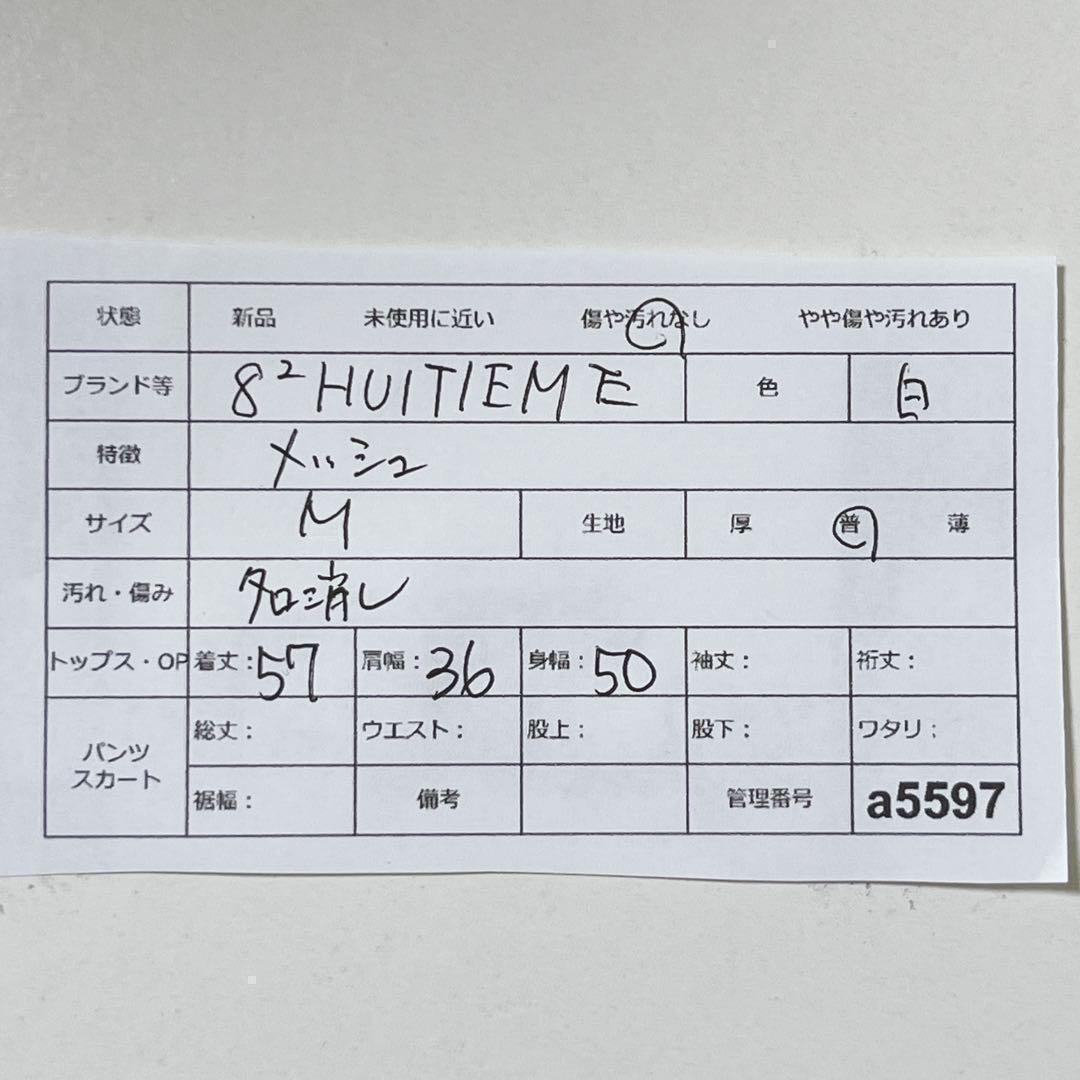 状態 新品 未使用に近い 傷や汚れなし やや傷や汚れあり
ブランド等 8² HUITIEME 色 白
特徴 メッシュ
サイズ M 生地 厚 普 薄
汚れ・傷み タロ消し
トップス・OP 着丈：57 肩幅：36 身幅：50 袖丈： 裄丈：
パンツ スカート 総丈： ウエスト： 股上： 股下： ワタリ：
裾幅： 備考 管理番号 a5597